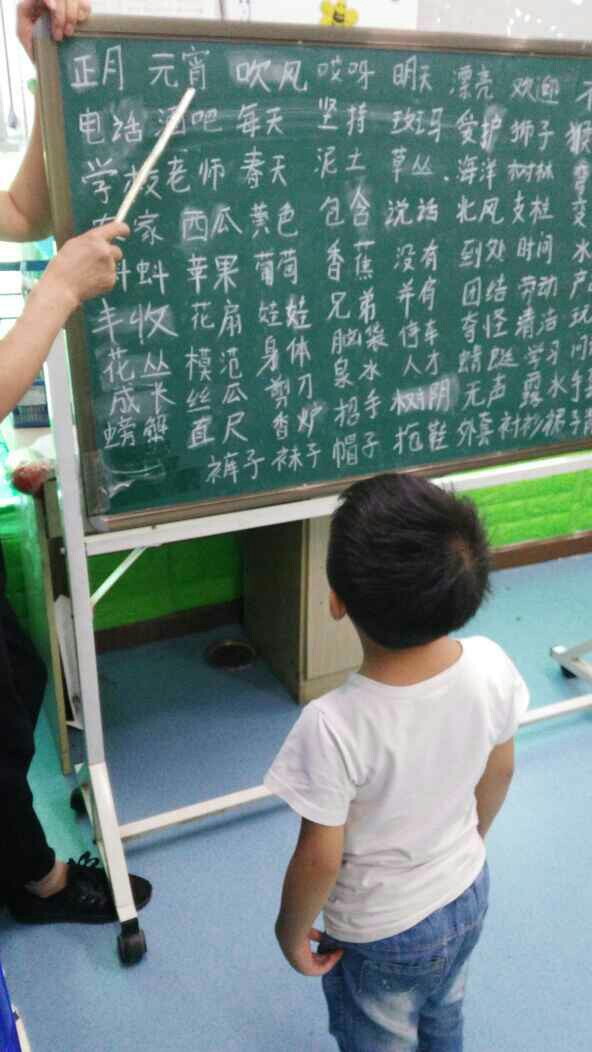 正月 元宵 吹风 哎呀 明天 漂亮 欢迎
电话 酒吧 每天 坚持 斑马 爱护 狮子 猴
学校 老师 春天 泥土 草丛 海洋 树林
家 西瓜 黄色 包含 说话 北风 支柱 变
蚪 苹果 葡萄 香蕉 没有 到处 时间 水
丰收 花扇 娃娃 兄弟 并有 团结 劳动 产
花丛 模范 身体 脑袋 停车 奇怪 清洁 玩
成长 丝瓜 剪刀 泉水 人才 蜻蜓 学习 问
螃蟹 直尺 香炉 招手 树阴 无声 露水 手
裤子 袜子 帽子 拖鞋 外套 衬衫 裙子